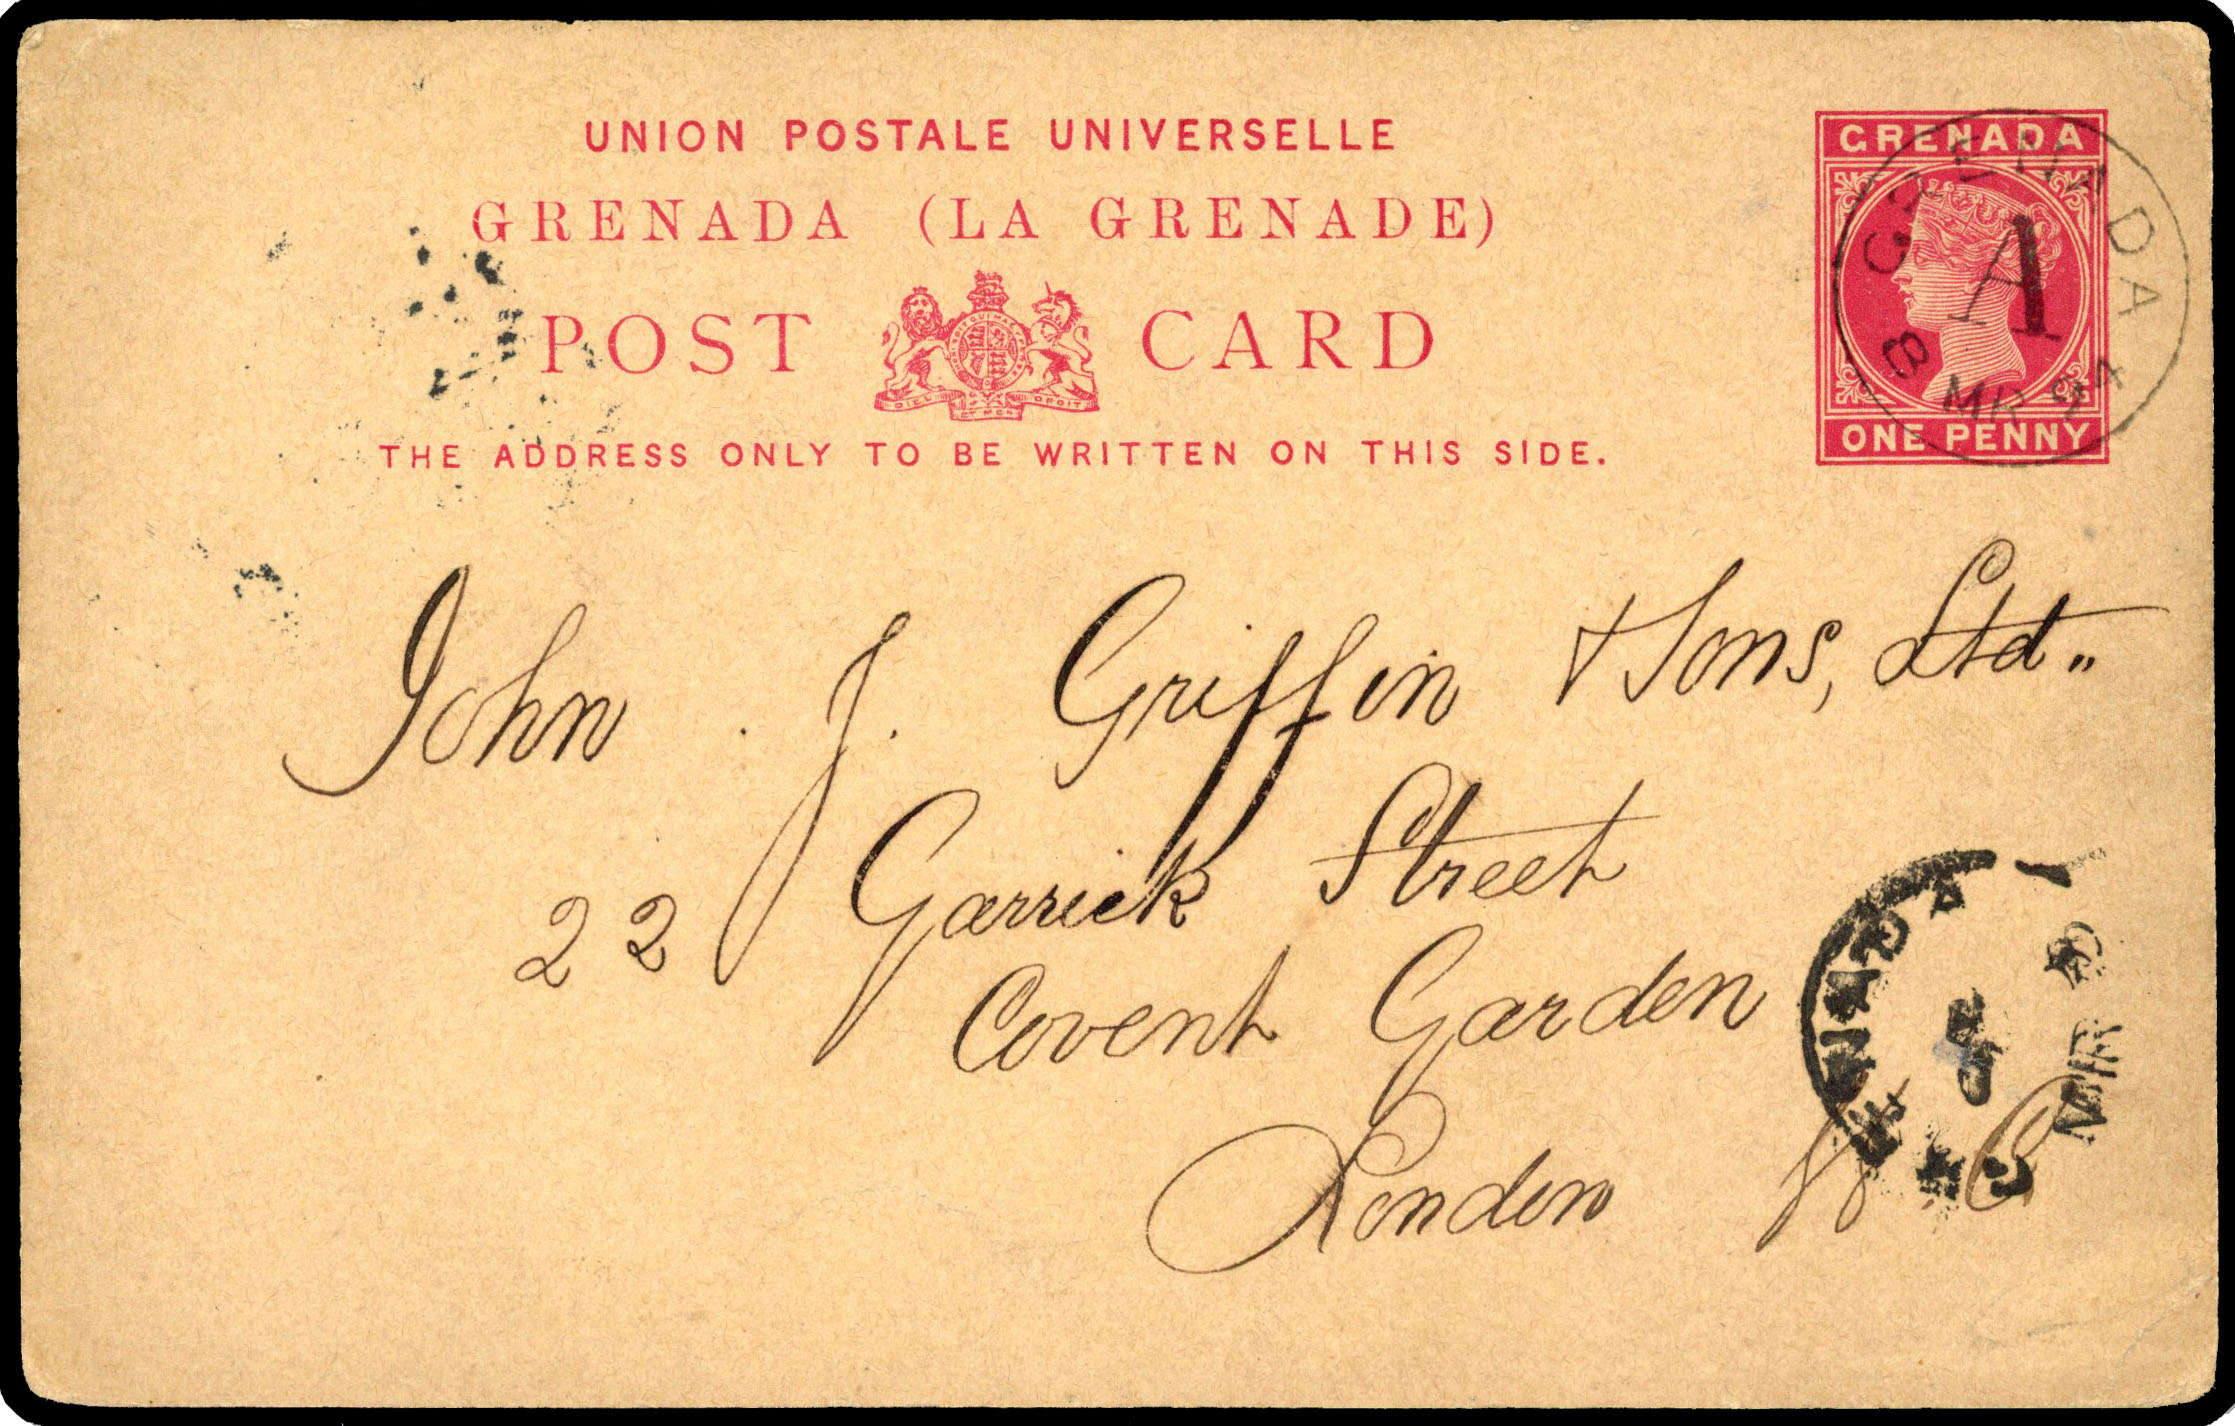 UNION POSTALE UNIVERSELLE
GRENADA (LA GRENADE)
POST CARD
THE ADDRESS ONLY TO BE WRITTEN ON THIS SIDE.
GRENADA
ONE PENNY
GRENADA
A
8 MR 94
John J. Griffin & Sons, Ltd.
22 Garrick Street
Covent Garden
London W C